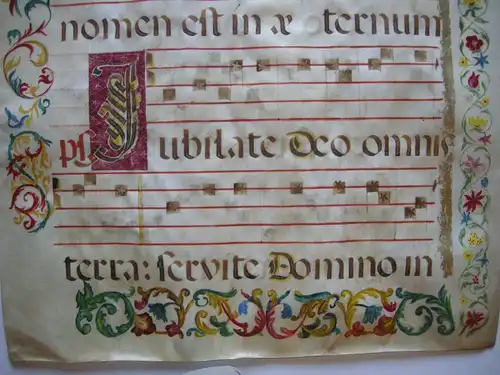 nomen est in æ ternum
ps Jubilate Deo omnis
terra: servite Domino in